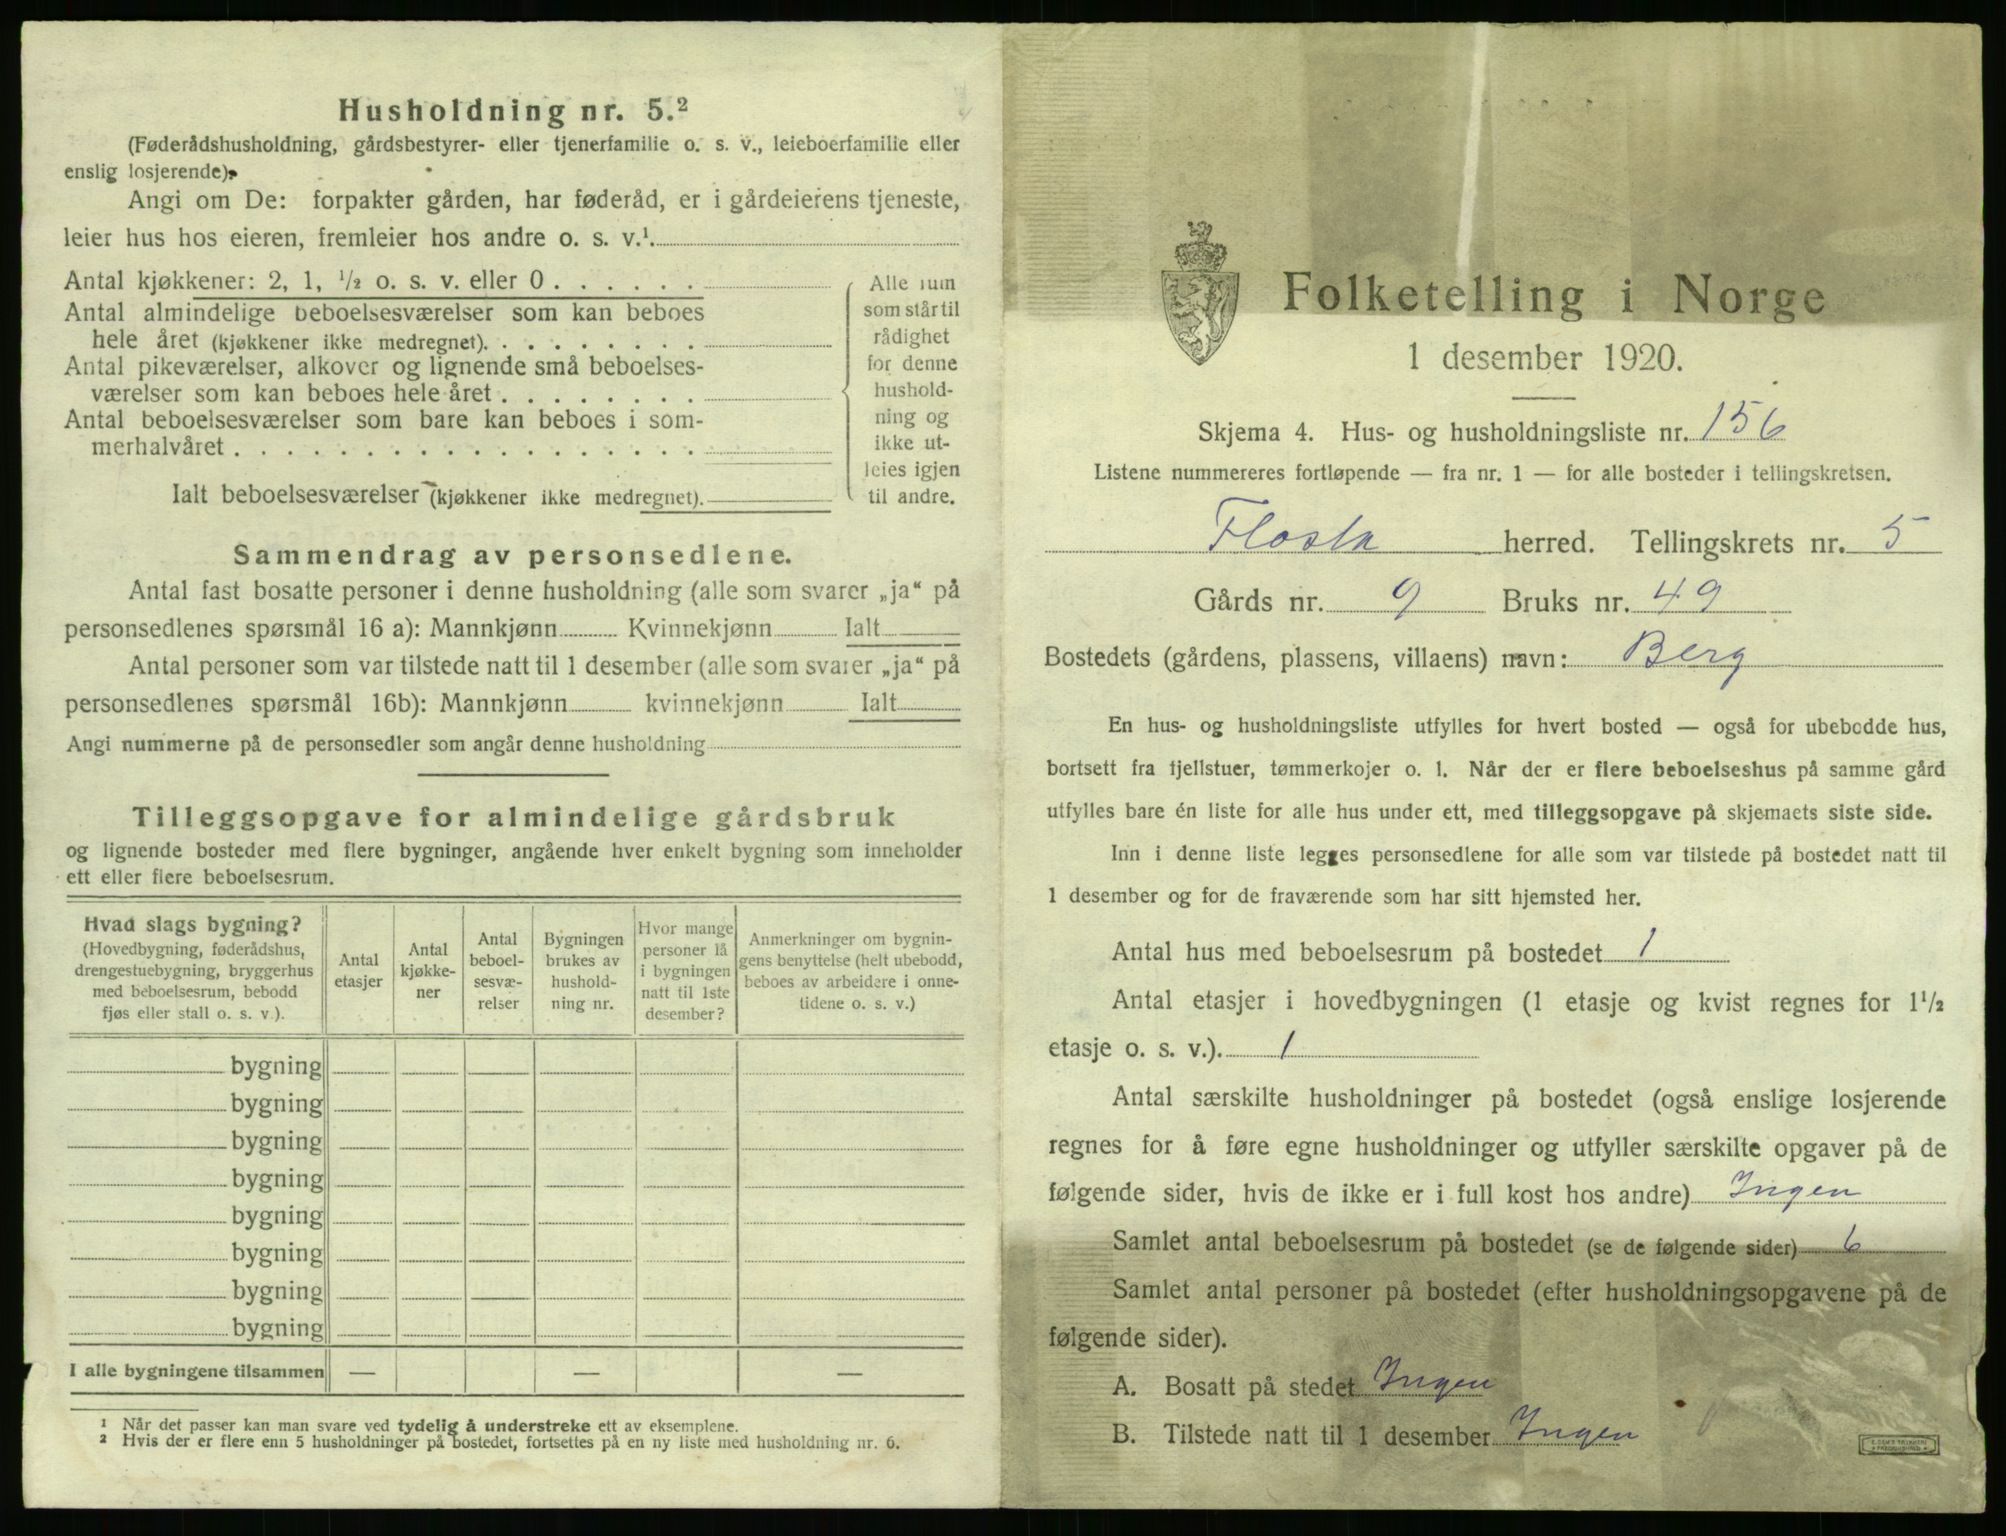 Husholdning nr. 5.²
(Føderådshusholdning, gårdsbestyrer- eller tjenerfamilie o. s. v., leieboerfamilie eller
enslig losjerende).
Angi om De: forpakter gården, har føderåd, er i gårdeierens tjeneste,
leier hus hos eieren, fremleier hos andre o. s. v.¹
Antal kjøkkener: 2, 1, ½ o. s. v. eller 0
Antal almindelige beboelsesværelser som kan beboes
hele året (kjøkkener ikke medregnet)
Antal pikeværelser, alkover og lignende små beboelses-
værelser som kan beboes hele året
Antal beboelsesværelser som bare kan beboes i som-
merhalvåret
Ialt beboelsesværelser (kjøkkener ikke medregnet)
Alle rum
som står til
rådighet
for denne
hushold-
ning og
ikke ut-
leies igjen
til andre.
Sammendrag av personsedlene.
Antal fast bosatte personer i denne husholdning (alle som svarer „ja“ på
personsedlenes spørsmål 16 a): Mannkjønn Kvinnekjønn Ialt
Antal personer som var tilstede natt til 1 desember (alle som svarer „ja“ på
personsedlenes spørsmål 16b): Mannkjønn kvinnekjønn Ialt
Angi nummerne på de personsedler som angår denne husholdning
Tilleggsopgave for almindelige gårdsbruk
og lignende bosteder med flere bygninger, angående hver enkelt bygning som inneholder
ett eller flere beboelsesrum.
Hvad slags bygning?
(Hovedbygning, føderådshus,
drengestuebygning, bryggerhus
med beboelsesrum, bebodd
fjøs eller stall o. s. v.).
Antal
etasjer
Antal
kjøkke-
ner
Antal
beboel-
sesvæ-
relser
Bygningen
brukes av
hushold-
ning nr.
Hvor mange
personer lå
i bygningen
natt til 1ste
desember?
Anmerkninger om bygnin-
gens benyttelse (helt ubebodd,
beboes av arbeidere i onne-
tidene o. s. v.)
bygning
bygning
bygning
bygning
bygning
bygning
bygning
bygning
I alle bygningene tilsammen — — —
¹ Når det passer kan man svare ved tydelig å understreke ett av eksemplene.
² Hvis der er flere enn 5 husholdninger på bostedet, fortsettes på en ny liste med husholdning nr. 6.
Folketelling i Norge
1 desember 1920.
Skjema 4. Hus- og husholdningsliste nr. 156
Listene nummereres fortløpende — fra nr. 1 — for alle bosteder i tellingskretsen.
Flosta herred. Tellingskrets nr. 5
Gårds nr. 9 Bruks nr. 49
Bostedets (gårdens, plassens, villaens) navn: Berg
En hus- og husholdningsliste utfylles for hvert bosted — også for ubebodde hus,
bortsett fra fjellstuer, tømmerkojer o. l. Når der er flere beboelseshus på samme gård
utfylles bare én liste for alle hus under ett, med tilleggsopgave på skjemaets siste side.
Inn i denne liste legges personsedlene for alle som var tilstede på bostedet natt til
1 desember og for de fraværende som har sitt hjemsted her.
Antal hus med beboelsesrum på bostedet 1
Antal etasjer i hovedbygningen (1 etasje og kvist regnes for 1½
etasje o. s. v.). 1
Antal særskilte husholdninger på bostedet (også enslige losjerende
regnes for å føre egne husholdninger og utfyller særskilte opgaver på de
følgende sider, hvis de ikke er i full kost hos andre) Ingen
Samlet antal beboelsesrum på bostedet (se de følgende sider) 6
Samlet antal personer på bostedet (efter husholdningsopgavene på de
følgende sider).
A. Bosatt på stedet Ingen
B. Tilstede natt til 1 desember Ingen